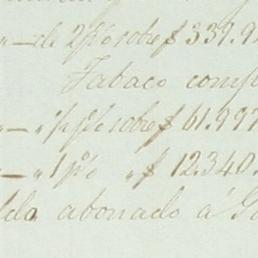 " — de 2 p% sobre $ 339.9
Tabaco comp
" — " ½ p% sobre $ 61.997
— " 1 p% " $ 12.340.
ldo abonado á G